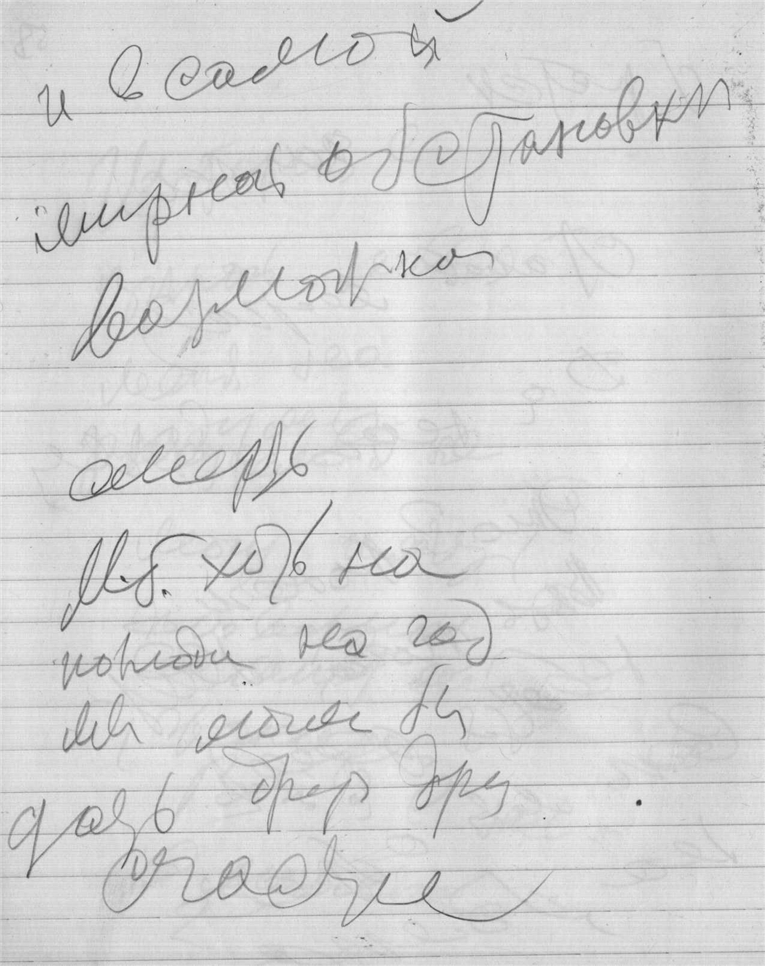 и в самой
мирной обстановки
возможна
смерть
М.б. хоть на
полгода на год
мы могли бы
дать друг другу
счастье